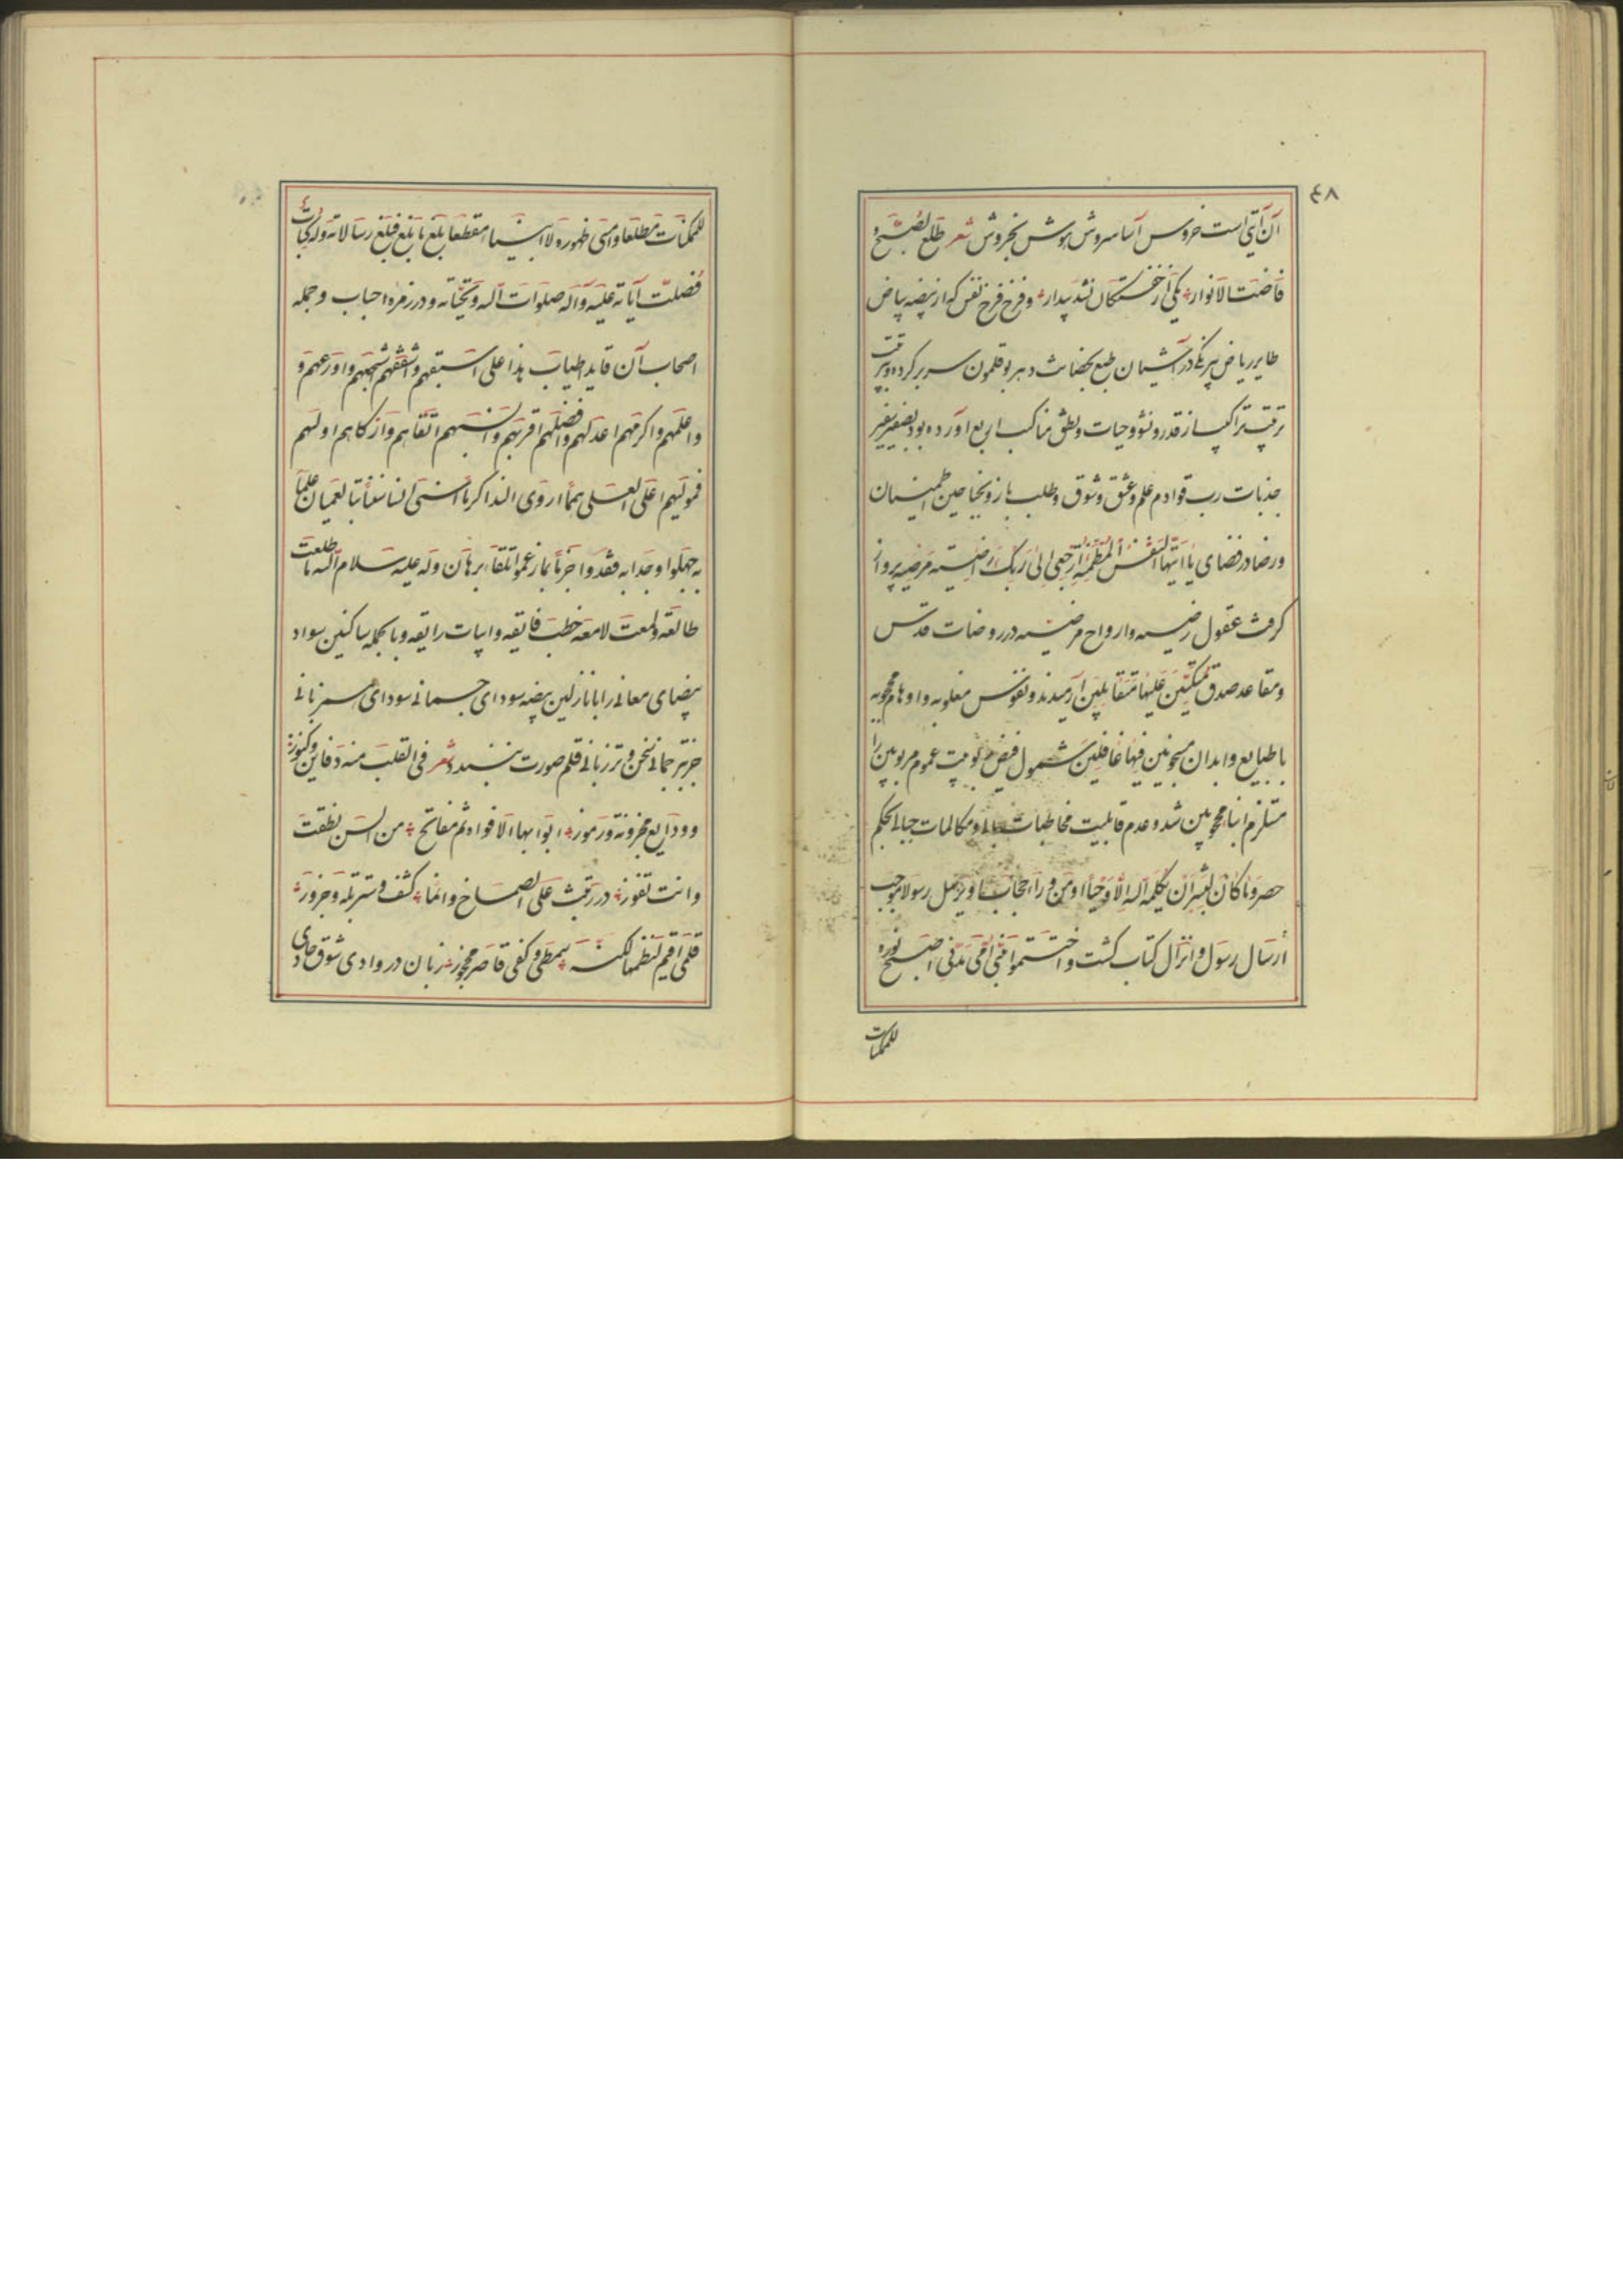 ٤٨
آن آیتی است خروس آسا سروش هوش بخروش شعر طلع الصبح و
فاضت الانوار یکی از خفتگان نشد بیدار و فرخ فرخ نفس که از بیضه بیاض
طایر ریاض بیرنگی در آشیان طبع بحضانت دهر بوقلمون سر بر کرده و
ترتیب تراکیب از قدر و نشو و حیات و نطق مناکب اربع آورده بود بصفیر
جذبات رب قوادم علم و عشق و شوق و طلب باز و بجناحین اطمینان
و رضا در فضای یا ایتها النفس المطمئنة ارجعی الی ربک راضیة مرضیه پرواز
گرفت عقول رضیه و ارواح مرضیه در روضات قدس
و مقاعد صدق متکئین علیها متقابلین آرمیدند و نفوس مغلوبه و اوهام محجوبه
با طبایع و ابدان مسجونین فیها غافلین شمول فیض عموم مربوبین را
مستلزم انباء محجوبین شد و عدم قابلیت مخاطبات و مکالمات بحکم
حصر و ما کان لبشر ان یکلمه الله الا وحیا او من وراء حجاب او یرسل رسولا موجب
ارسال رسول و انزال کتاب گشت و اختتموا فی امی مدنی اصبح نوره
للممکنات
للممکنات مطلعا و امسی ظهوره لانبیاء مقطعا بلغ ما بلغ فبلغ رسالاته وله کتاب
فصلت آیاته علیه و آله صلوات الله و تحیاته و در زمره احباب و جمله
اصحاب آن قاید اطیاب هذا علی اسبقهم و اشفقهم اشجعهم و اورعهم و
و اعلمهم و اکرمهم اعدلهم و افضلهم اقربهم و انسبهم اتقاهم و ازکاهم اولهم
فمولیهم اعلی العلی
به جهلوا وجدا به فقدوا برهان و له علیه سلام الله ما طلعت
طالعة و لمعت لامعه خطب فایقه و ابیات رایقه و بالجمله ساکنین سواد
بیضای معانی را با نازلین بیضه سودای جسمانی سودای همزبانی
جز بترجمانی سخن و ترزبانی قلم صورت نبندد شعر فی القلب منه دفاین و کنوز
و ودایع مخزونة و رموز ابوابها الافواه ثم مفاتح من السن نطقت
و انت تفوز در رقبت علی الصماخ و انما کشف و ستر
قلمی اقیم لنظمها لکنه و کفی قاصر زبان در وادی شوق